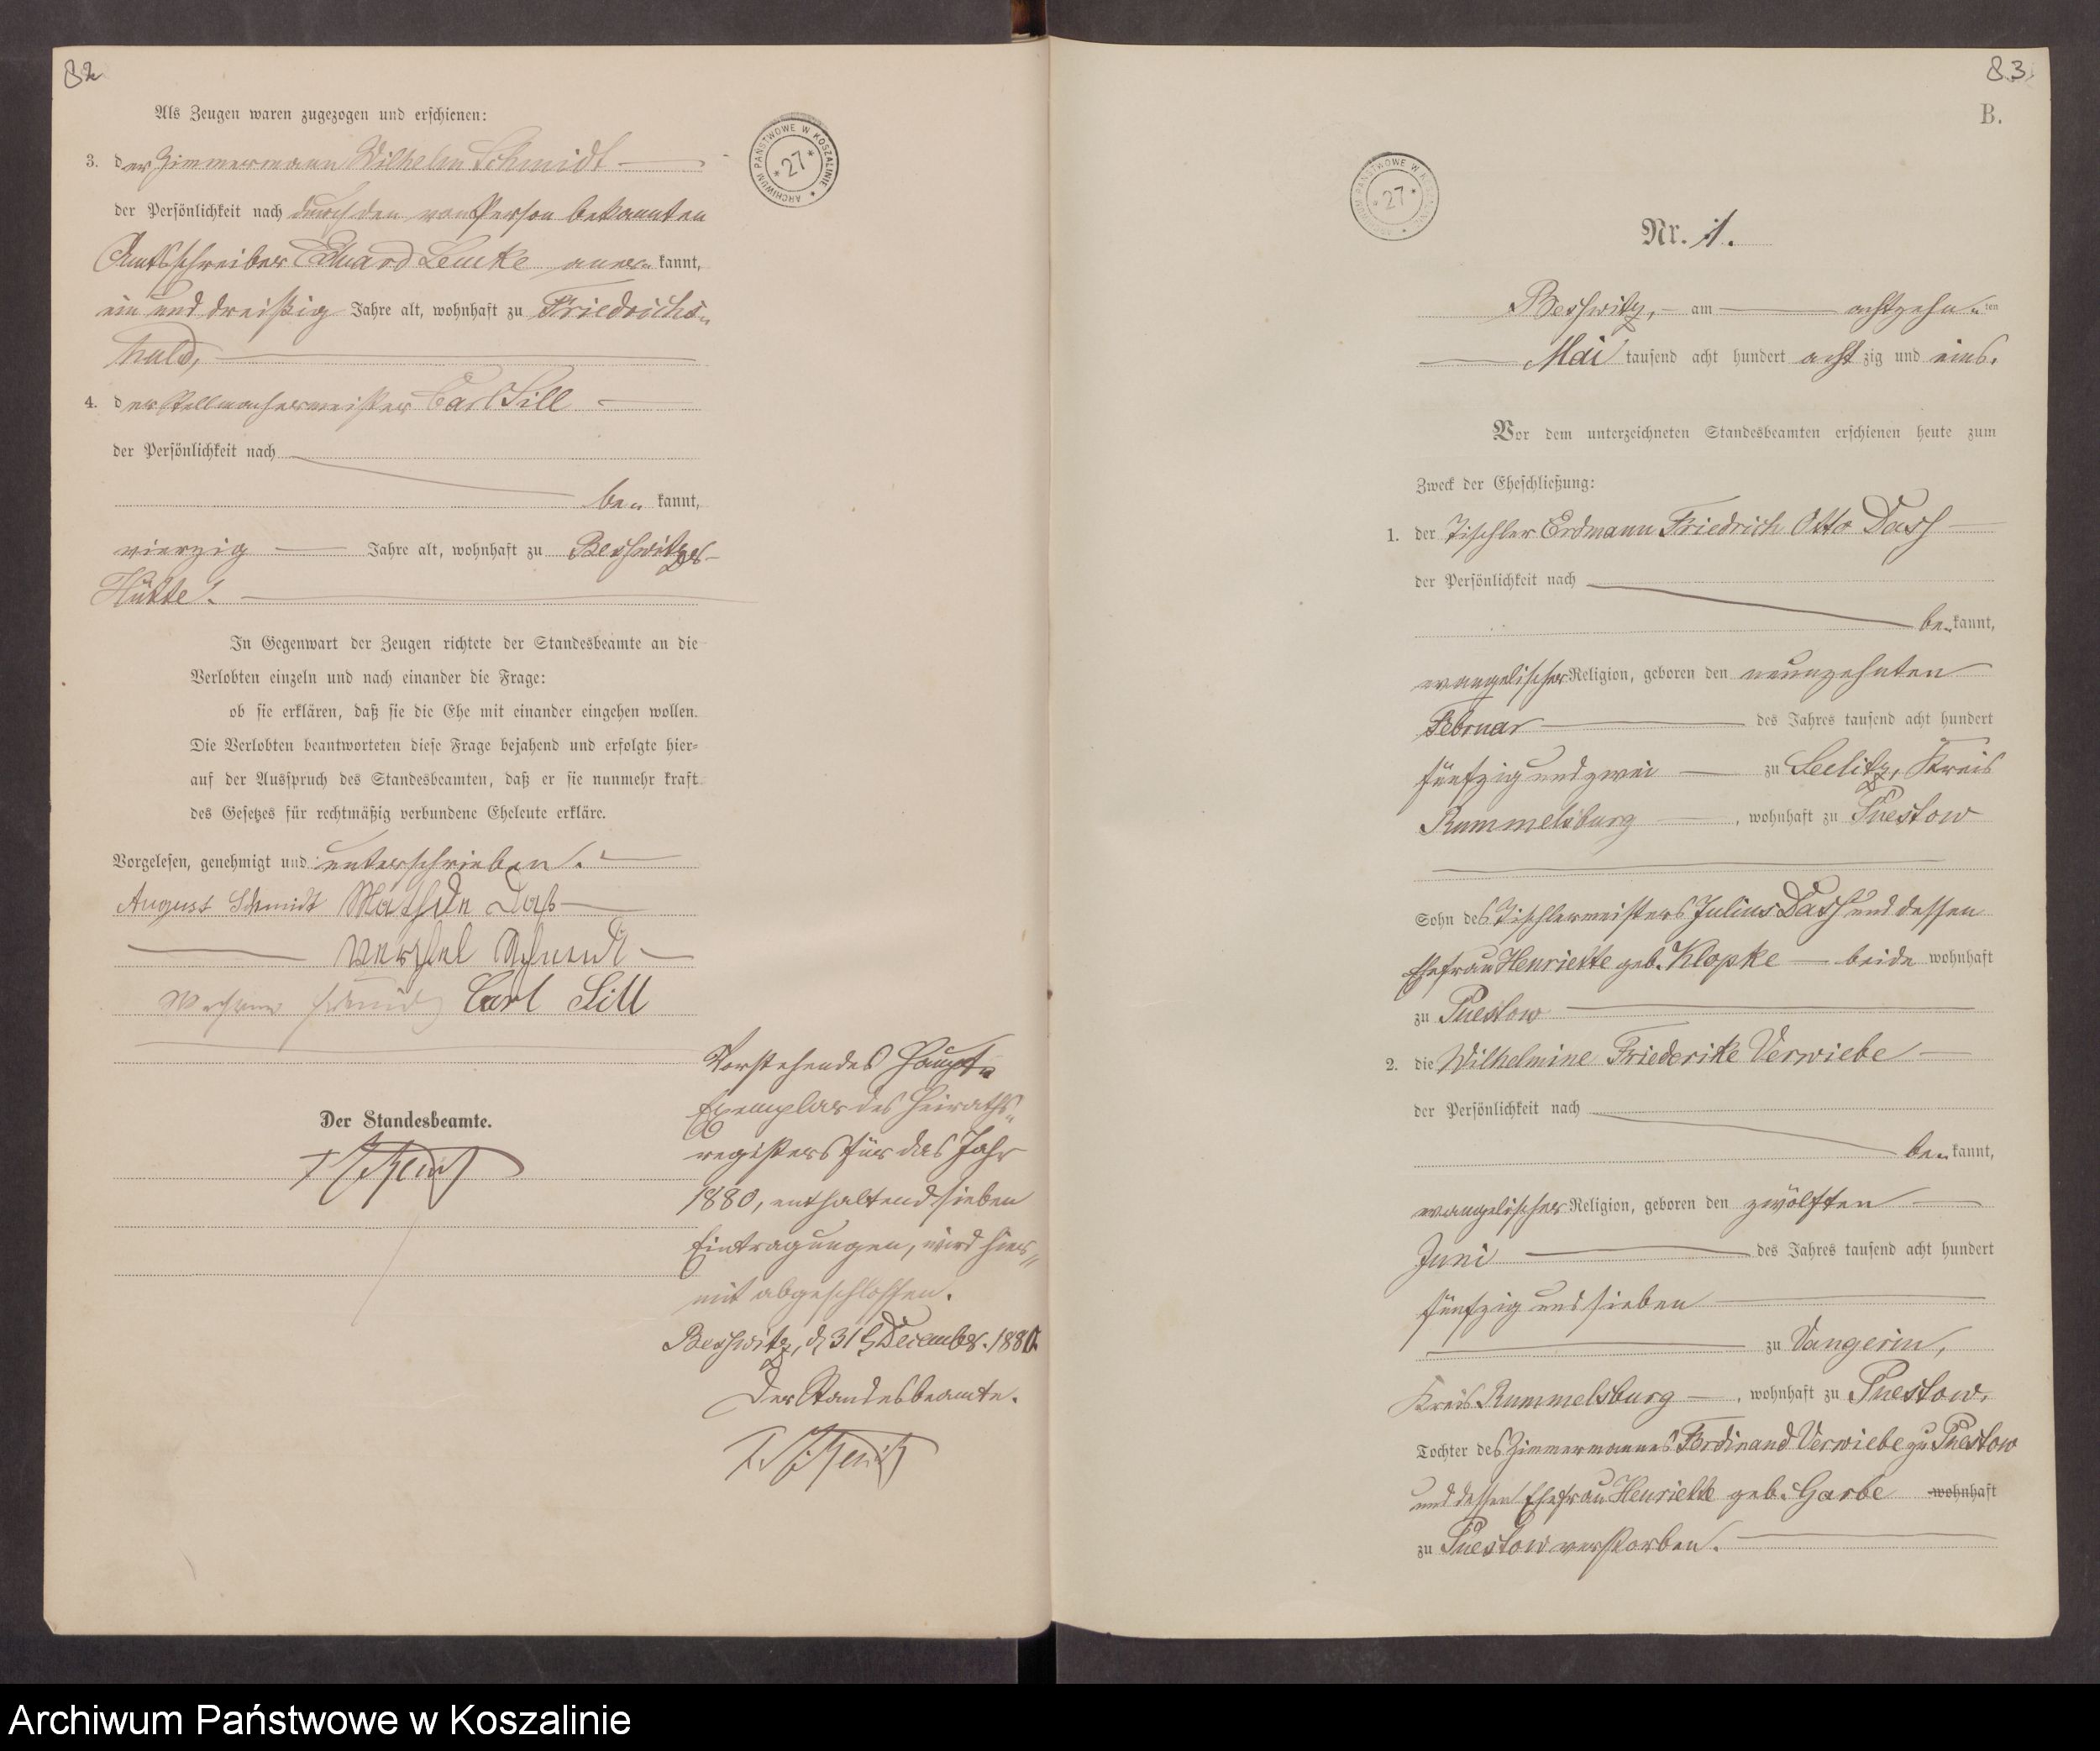 82
Als Zeugen waren zugezogen und erschienen:
3. der Zimmermann Wilhelm Schmidt
der Persönlichkeit nach durch den von Person bekannten
Amtsschreiber Eduard Lemke aner- kannt,
ein und dreißig Jahre alt, wohnhaft zu Friedrichs-
huld,
4. der Stellmachermeister Carl Sill
der Persönlichkeit nach
be- kannt,
vierzig Jahre alt, wohnhaft zu Besswitzer-
Hütte.
In Gegenwart der Zeugen richtete der Standesbeamte an die
Verlobten einzeln und nach einander die Frage:
ob sie erklären, daß sie die Ehe mit einander eingehen wollen.
Die Verlobten beantworteten diese Frage bejahend und erfolgte hier-
auf der Ausspruch des Standesbeamten, daß er sie nunmehr kraft
des Gesetzes für rechtmäßig verbundene Eheleute erkläre.
Vorgelesen, genehmigt und unterschrieben.
August Schmidt Daß
Carl Sill
Der Standesbeamte.
Vorstehendes Haupt-
Exemplar des Heiraths-
registers für das Jahr
1880, enthaltend sieben
Eintragungen, wird hier-
mit abgeschlossen.
Besswitz, d 31 December 1880.
Der Standesbeamte.
ARCHIWUM PAŃSTWOWE W KOSZALINIE
* 27 *
83
B.
ARCHIWUM PAŃSTWOWE W KOSZALINIE
* 27 *
Nr. 1.
Besswitz, am achtzehn- ten
Mai tausend acht hundert acht zig und eins.
Vor dem unterzeichneten Standesbeamten erschienen heute zum
Zweck der Eheschließung:
1. der Tischler Erdmann Friedrich Otto Dass
der Persönlichkeit nach
be- kannt,
evangelischer Religion, geboren den neunzehnten
Februar des Jahres tausend acht hundert
fünfzig und zwei zu Seelitz, Kreis
Rummelsburg, wohnhaft zu Puestow
Sohn des Tischlermeisters Julius Dass und dessen
Ehefrau Henriette geb. Klopke beide wohnhaft
zu Puestow
2. die Wilhelmine Friederike Verwiebe
der Persönlichkeit nach
be- kannt,
evangelischer Religion, geboren den zwölften
Juni des Jahres tausend acht hundert
fünfzig und sieben
zu Vangerin,
Kreis Rummelsburg, wohnhaft zu Puestow,
Tochter des Zimmermannes Ferdinand Verwiebe zu Puestow
und dessen Ehefrau Henriette geb. Garbe wohnhaft
zu Puestow verstorben.
Archiwum Państwowe w Koszalinie